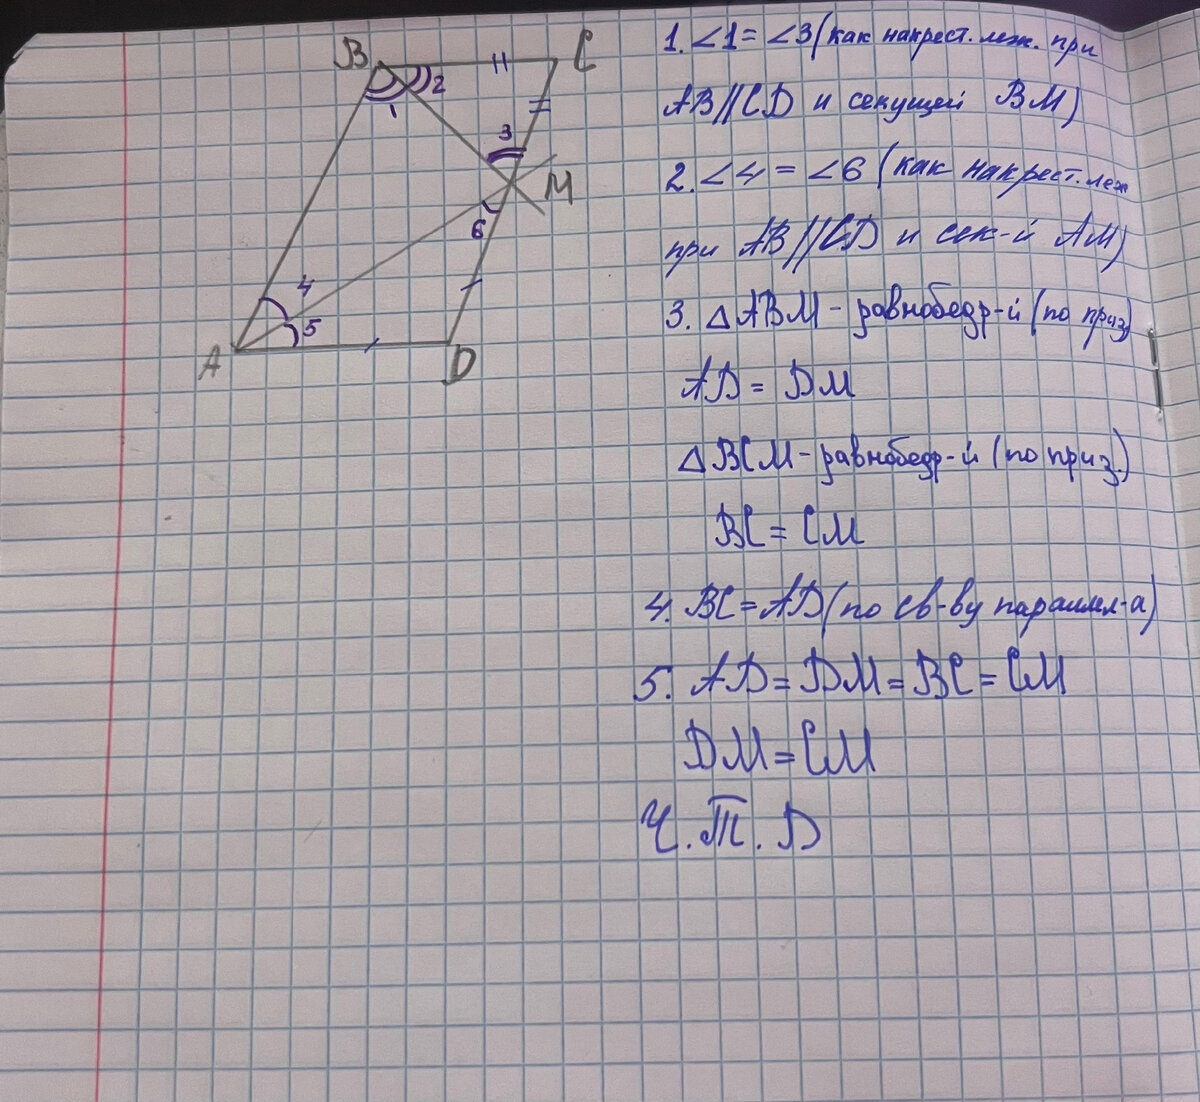 B
C
1
2
3
M
6
4
5
A
D
1. ∠1 = ∠3 (как накрест. леж. при
AB||CD и секущей BM)
2. ∠4 = ∠6 (как накрест. леж
при AB||CD и сек-й AM)
3. △ABM - равнобедр-й (по приз)
AD = DM
△BCM - равнобедр-й (по приз.)
BC = CM
4. BC = AD (по св-ву параллел-а)
5. AD = DM = BC = CM
DM = CM
Ч.Т.Д